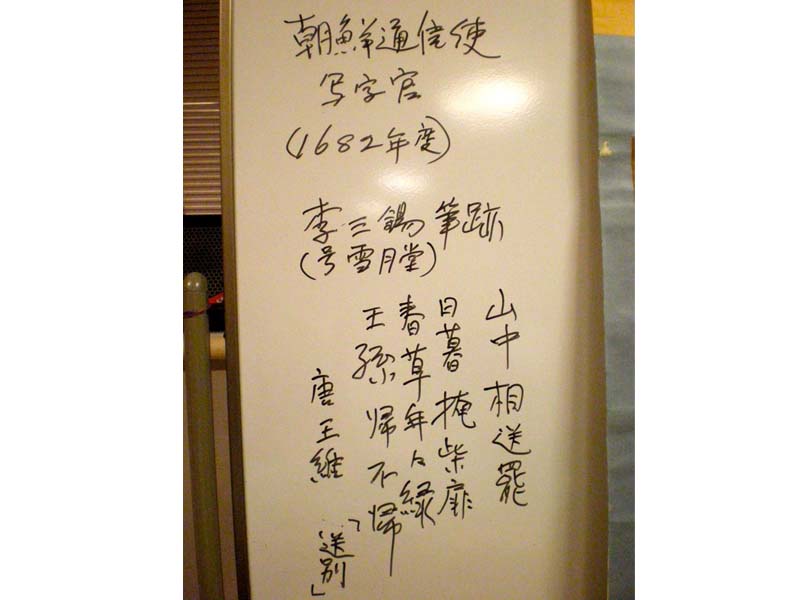 朝鮮通信使
写字官
(1682年度)
李三錫筆跡
(号雪月堂)
山中相送罷
日暮掩柴扉
春草年々緑
王孫帰不帰
唐王維「送別」